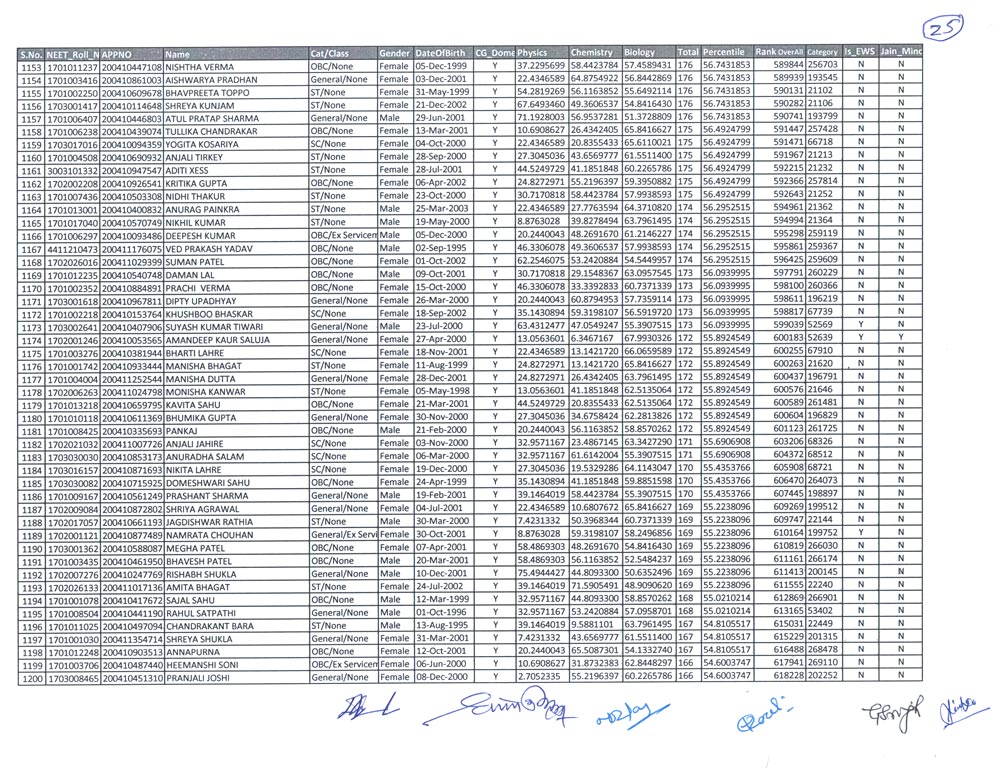 25
S.No. NEET_Roll_N APPNO Name Cat/Class Gender DateOfBirth CG_Dome Physics Chemistry Biology Total Percentile Rank OverAll Category Is_EWS Jain_Minc
1153 1701011237 200410447108 NISHTHA VERMA OBC/None Female 05-Dec-1999 Y 37.2295699 58.4423784 57.4589431 176 56.7431853 589844 256703 N N
1154 1701003416 200410861003 AISHWARYA PRADHAN General/None Female 03-Dec-2001 Y 22.4346589 64.8754922 56.8442869 176 56.7431853 589939 193545 N N
1155 1701002250 200410609678 BHAVPREETA TOPPO ST/None Female 31-May-1999 Y 54.2819269 56.1163852 55.6492114 176 56.7431853 590131 21102 N N
1156 1703001417 200410114648 SHREYA KUNJAM ST/None Female 21-Dec-2002 Y 67.6493460 49.3606537 54.8416430 176 56.7431853 590282 21106 N N
1157 1701006407 200410446803 ATUL PRATAP SHARMA General/None Male 29-Jun-2001 Y 71.1928003 56.9537281 51.3728809 176 56.7431853 590741 193799 N N
1158 1701006238 200410439074 TULLIKA CHANDRAKAR OBC/None Female 13-Mar-2001 Y 10.6908627 26.4342405 65.8416627 175 56.4924799 591447 257428 N N
1159 1703017016 200410094359 YOGITA KOSARIYA SC/None Female 04-Oct-2000 Y 22.4346589 20.8355433 65.6110021 175 56.4924799 591471 66718 N N
1160 1701004508 200410690932 ANJALI TIRKEY ST/None Female 28-Sep-2000 Y 27.3045036 43.6569777 61.5511400 175 56.4924799 591967 21213 N N
1161 3003101332 200410947547 ADITI XESS ST/None Female 28-Jul-2001 Y 44.5249729 41.1851848 60.2265786 175 56.4924799 592215 21232 N N
1162 1702002208 200410926541 KRITIKA GUPTA OBC/None Female 06-Apr-2002 Y 24.8272971 55.2196397 59.3950882 175 56.4924799 592366 257814 N N
1163 1701007436 200410503308 NIDHI THAKUR ST/None Female 23-Oct-2000 Y 30.7170818 58.4423784 57.9938593 175 56.4924799 592643 21252 N N
1164 1701013001 200410400832 ANURAG PAINKRA ST/None Male 25-Mar-2003 Y 22.4346589 27.7763594 64.3710820 174 56.2952515 594961 21362 N N
1165 1701017040 200410570749 NIKHIL KUMAR ST/None Male 19-May-2000 Y 8.8763028 39.8278494 63.7961495 174 56.2952515 594994 21364 N N
1166 1701006297 200410093486 DEEPESH KUMAR OBC/Ex Servicen Male 05-Dec-2000 Y 20.2440043 48.2691670 61.2146227 174 56.2952515 595298 259119 N N
1167 4411210473 200411176075 VED PRAKASH YADAV OBC/None Male 02-Sep-1995 Y 46.3306078 49.3606537 57.9938593 174 56.2952515 595861 259367 N N
1168 1702026016 200411029399 SUMAN PATEL OBC/None Female 01-Oct-2002 Y 62.2546075 53.2420884 54.5449957 174 56.2952515 596425 259609 N N
1169 1701012235 200410540748 DAMAN LAL OBC/None Male 09-Oct-2001 Y 30.7170818 29.1548367 63.0957545 173 56.0939995 597791 260229 N N
1170 1701002352 200410884891 PRACHI VERMA OBC/None Female 15-Oct-2000 Y 46.3306078 33.3392833 60.7371339 173 56.0939995 598100 260366 N N
1171 1703001618 200410967811 DIPTY UPADHYAY General/None Female 26-Mar-2000 Y 20.2440043 60.8794953 57.7359114 173 56.0939995 598611 196219 N N
1172 1701002218 200410153764 KHUSHBOO BHASKAR SC/None Female 18-Sep-2002 Y 35.1430894 59.3198107 56.5919720 173 56.0939995 598817 67739 N N
1173 1703002641 200410407906 SUYASH KUMAR TIWARI General/None Male 23-Jul-2000 Y 63.4312477 47.0549247 55.3907515 173 56.0939995 599039 52569 Y N
1174 1702001246 200410053565 AMANDEEP KAUR SALUJA General/None Female 27-Apr-2000 Y 13.0563601 6.3467167 67.9930326 172 55.8924549 600183 52639 Y Y
1175 1701003276 200410381944 BHARTI LAHRE SC/None Female 18-Nov-2001 Y 22.4346589 13.1421720 66.0659589 172 55.8924549 600255 67910 N N
1176 1701001742 200410933444 MANISHA BHAGAT ST/None Female 11-Aug-1999 Y 24.8272971 13.1421720 65.8416627 172 55.8924549 600263 21620 N N
1177 1701004004 200411252544 MANISHA DUTTA General/None Female 28-Dec-2001 Y 24.8272971 26.4342405 63.7961495 172 55.8924549 600437 196791 N N
1178 1702006263 200411024798 MONISHA KANWAR ST/None Female 05-May-1998 Y 13.0563601 41.1851848 62.5135064 172 55.8924549 600576 21646 N N
1179 1701013218 200410659795 KAVITA SAHU OBC/None Female 21-Mar-2001 Y 44.5249729 20.8355433 62.5135064 172 55.8924549 600589 261481 N N
1180 1701010118 200410611369 BHUMIKA GUPTA General/None Female 30-Nov-2000 Y 27.3045036 34.6758424 62.2813826 172 55.8924549 600604 196829 N N
1181 1701008425 200410335693 PANKAJ OBC/None Male 21-Feb-2000 Y 20.2440043 56.1163852 58.8570262 172 55.8924549 601123 261725 N N
1182 1702021032 200411007726 ANJALI JAHIRE SC/None Female 03-Nov-2000 Y 32.9571167 23.4867145 63.3427290 171 55.6906908 603206 68326 N N
1183 1703030030 200410853173 ANURADHA SALAM SC/None Female 06-Mar-2000 Y 32.9571167 61.6142004 55.3907515 171 55.6906908 604372 68512 N N
1184 1703016157 200410871693 NIKITA LAHRE SC/None Female 19-Dec-2000 Y 27.3045036 19.5329286 64.1143047 170 55.4353766 605908 68721 N N
1185 1703030082 200410715925 DOMESHWARI SAHU OBC/None Female 24-Apr-1999 Y 35.1430894 41.1851848 59.8851598 170 55.4353766 606470 264073 N N
1186 1701009167 200410561249 PRASHANT SHARMA General/None Male 19-Feb-2001 Y 39.1464019 58.4423784 55.3907515 170 55.4353766 607445 198897 N N
1187 1702009084 200410872802 SHRIYA AGRAWAL General/None Female 04-Jul-2001 Y 22.4346589 10.6807672 65.8416627 169 55.2238096 609269 199512 N N
1188 1702017057 200410661193 JAGDISHWAR RATHIA ST/None Male 30-Mar-2000 Y 7.4231332 50.3968344 60.7371339 169 55.2238096 609747 22144 N N
1189 1702001121 200410877489 NAMRATA CHOUHAN General/Ex Servi Female 30-Oct-2001 Y 8.8763028 59.3198107 58.2496856 169 55.2238096 610164 199752 Y N
1190 1703001362 200410588087 MEGHA PATEL OBC/None Female 07-Apr-2001 Y 58.4869303 48.2691670 54.8416430 169 55.2238096 610819 266030 N N
1191 1701003435 200410461950 BHAVESH PATEL OBC/None Male 20-Mar-2001 Y 58.4869303 56.1163852 52.5484237 169 55.2238096 611161 266174 N N
1192 1702007276 200410247769 RISHABH SHUKLA General/None Male 10-Dec-2001 Y 75.4944427 44.8093300 50.6352496 169 55.2238096 611413 200145 N N
1193 1702026133 200411017136 AMITA BHAGAT ST/None Female 24-Jul-2002 Y 39.1464019 71.5905491 48.9090620 169 55.2238096 611555 22240 N N
1194 1701001078 200410417672 SAJAL SAHU OBC/None Male 12-Mar-1999 Y 32.9571167 44.8093300 58.8570262 168 55.0210214 612869 266901 N N
1195 1701008504 200410441190 RAHUL SATPATHI General/None Male 01-Oct-1996 Y 32.9571167 53.2420884 57.0958701 168 55.0210214 613165 53402 Y N
1196 1701011025 200410497094 CHANDRAKANT BARA ST/None Male 13-Aug-1995 Y 39.1464019 9.5881101 63.7961495 167 54.8105517 615031 22449 N N
1197 1701001030 200411354714 SHREYA SHUKLA General/None Female 31-Mar-2001 Y 7.4231332 43.6569777 61.5511400 167 54.8105517 615229 201315 N N
1198 1701012248 200410903513 ANNAPURNA OBC/None Female 12-Oct-2001 Y 20.2440043 65.5087301 54.1332740 167 54.8105517 616488 268478 N N
1199 1701003706 200410487440 HEEMANSHI SONI OBC/Ex Servicen Female 06-Jun-2000 Y 10.6908627 31.8732383 62.8448297 166 54.6003747 617941 269110 N N
1200 1703008465 200410451310 PRANJALI JOSHI General/None Female 08-Dec-2000 Y 2.7052335 55.2196397 60.2265786 166 54.6003747 618228 202252 N N